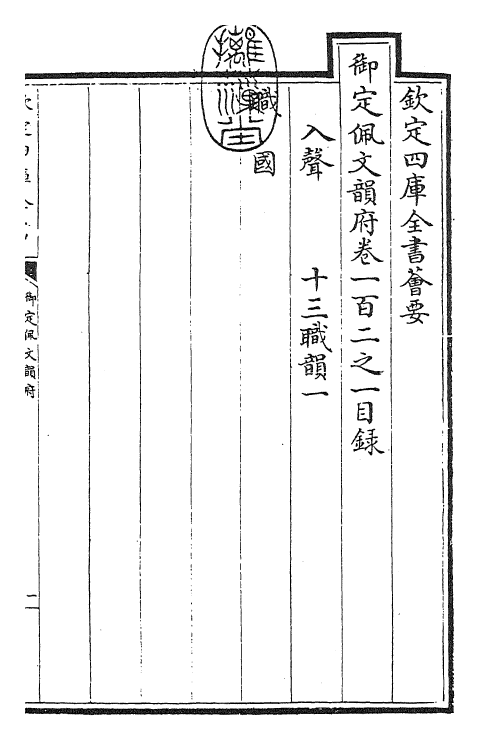 欽定四庫全書薈要
御定佩文韻府卷一百二之一目録
入聲　十三職韻一
職
國
御定佩文韻府